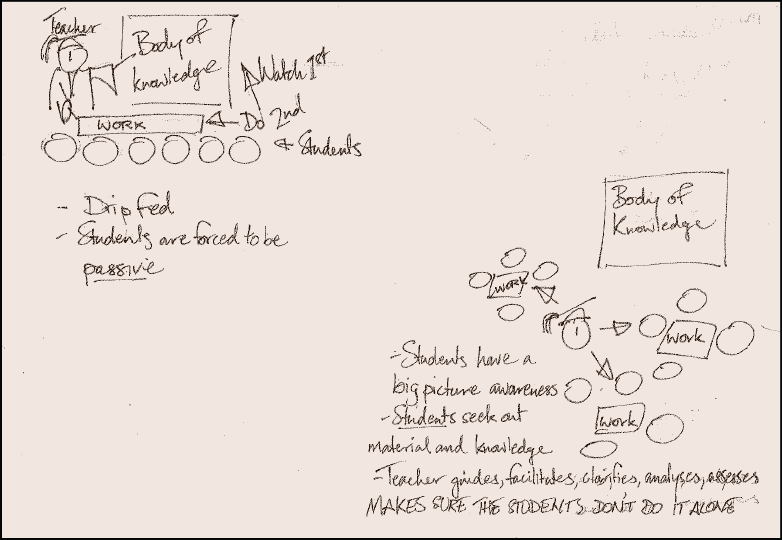 Teacher
Body of
knowledge
Watch 1st
Do 2nd
WORK
Students
- Drip fed
- Students are forced to be
passive
Body of
Knowledge
WORK
Work
Work
- Students have a
big picture awareness
- Students seek out
material and knowledge
- Teacher guides, facilitates, clarifies, analyses, assesses
MAKES SURE THE STUDENTS DON'T DO IT ALONE